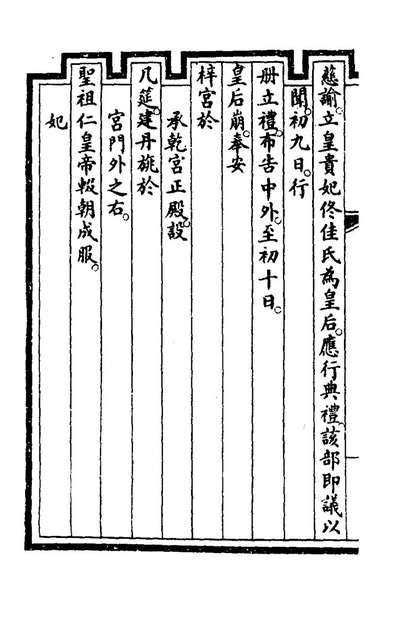 慈諭。立皇貴妃佟佳氏為皇后。應行典禮。該部即議以
聞。初九日。行
册立禮。布告中外。至初十日。
皇后崩。奉安
梓宮於
承乾宮正殿。設
几筵。建丹旐於
宮門外之右。
聖祖仁皇帝輟朝成服。
妃